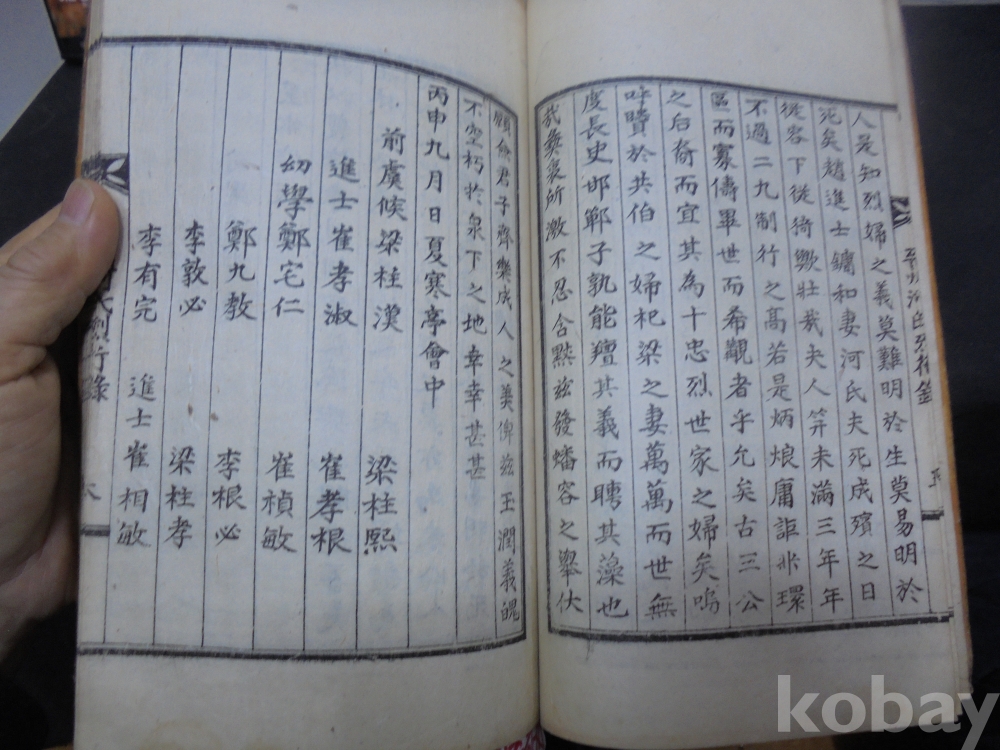 人是知烈婦之義莫難明於生莫易明於
死矣趙進士鏞和妻河氏夫死成殯之日
從容下從猗歟壯哉夫人筓未滿三年年
不過二九制行之髙若是炳烺庸詎非環
區而寡儔畢世而希覯者乎允矣古三公
之后裔而宜其為十忠烈世家之婦矣嗚
呼贒於共伯之婦杞梁之妻萬萬而世無
度長史邯鄲子孰能擅其義而聘其藻也
哉彜衷所激不忍含黙玆發蟠容之舉伏
願僉君子齊樂成人之美俾玆玉潤義魄
不空朽於泉下之地幸幸甚甚
丙申九月日夏寒亭會中
前虞候梁柱漢 梁柱熙
進士崔孝淑 崔孝根
幼學鄭宅仁 崔禎敏
鄭九敎 李根必
李敦必 梁柱孝
李有完 進士崔相敏
氏烈行錄
kobay